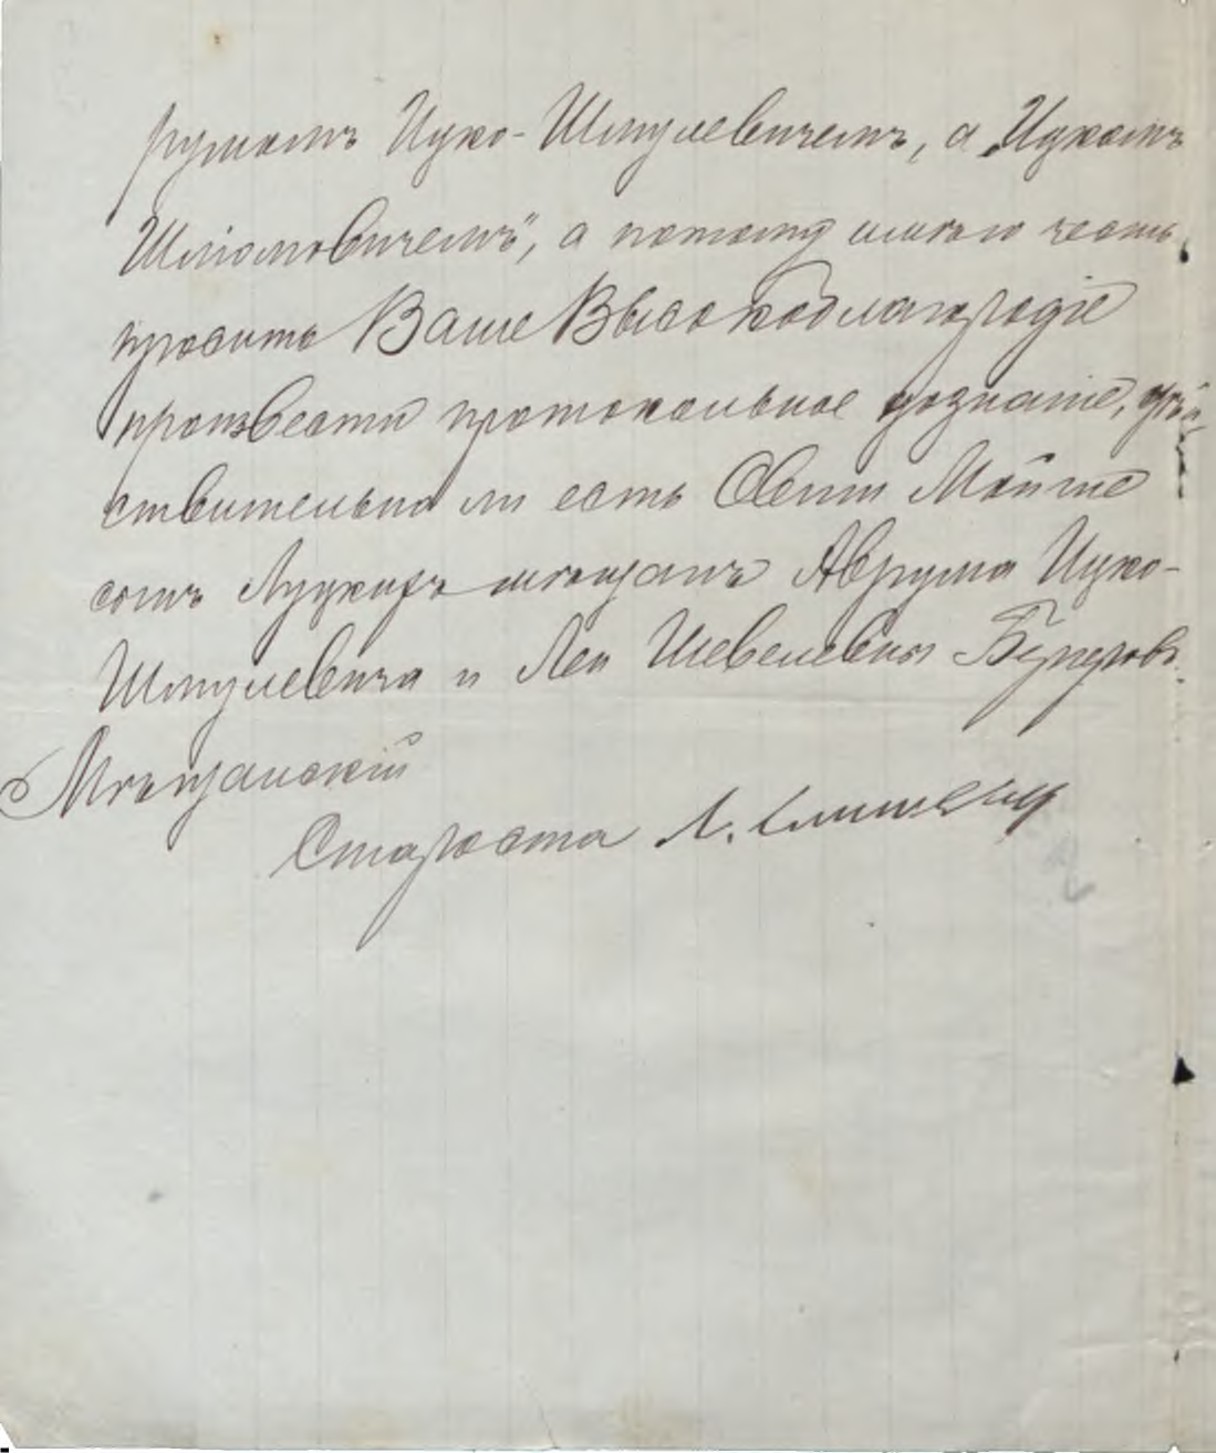 румомъ Ицко-Шмулевичемъ, а „Ицкомъ
Шліомовичемъ", а потому имѣю честь
просить Ваше Высокоблагородіе
произвести протокольное дознаніе, дѣй-
ствительно ли есть Овши Мойше
сынъ Луцкихъ мѣщанъ Аврума Ицко-
Шмулевича и Леи Шевелевны
Мѣщанскій
Староста Л.